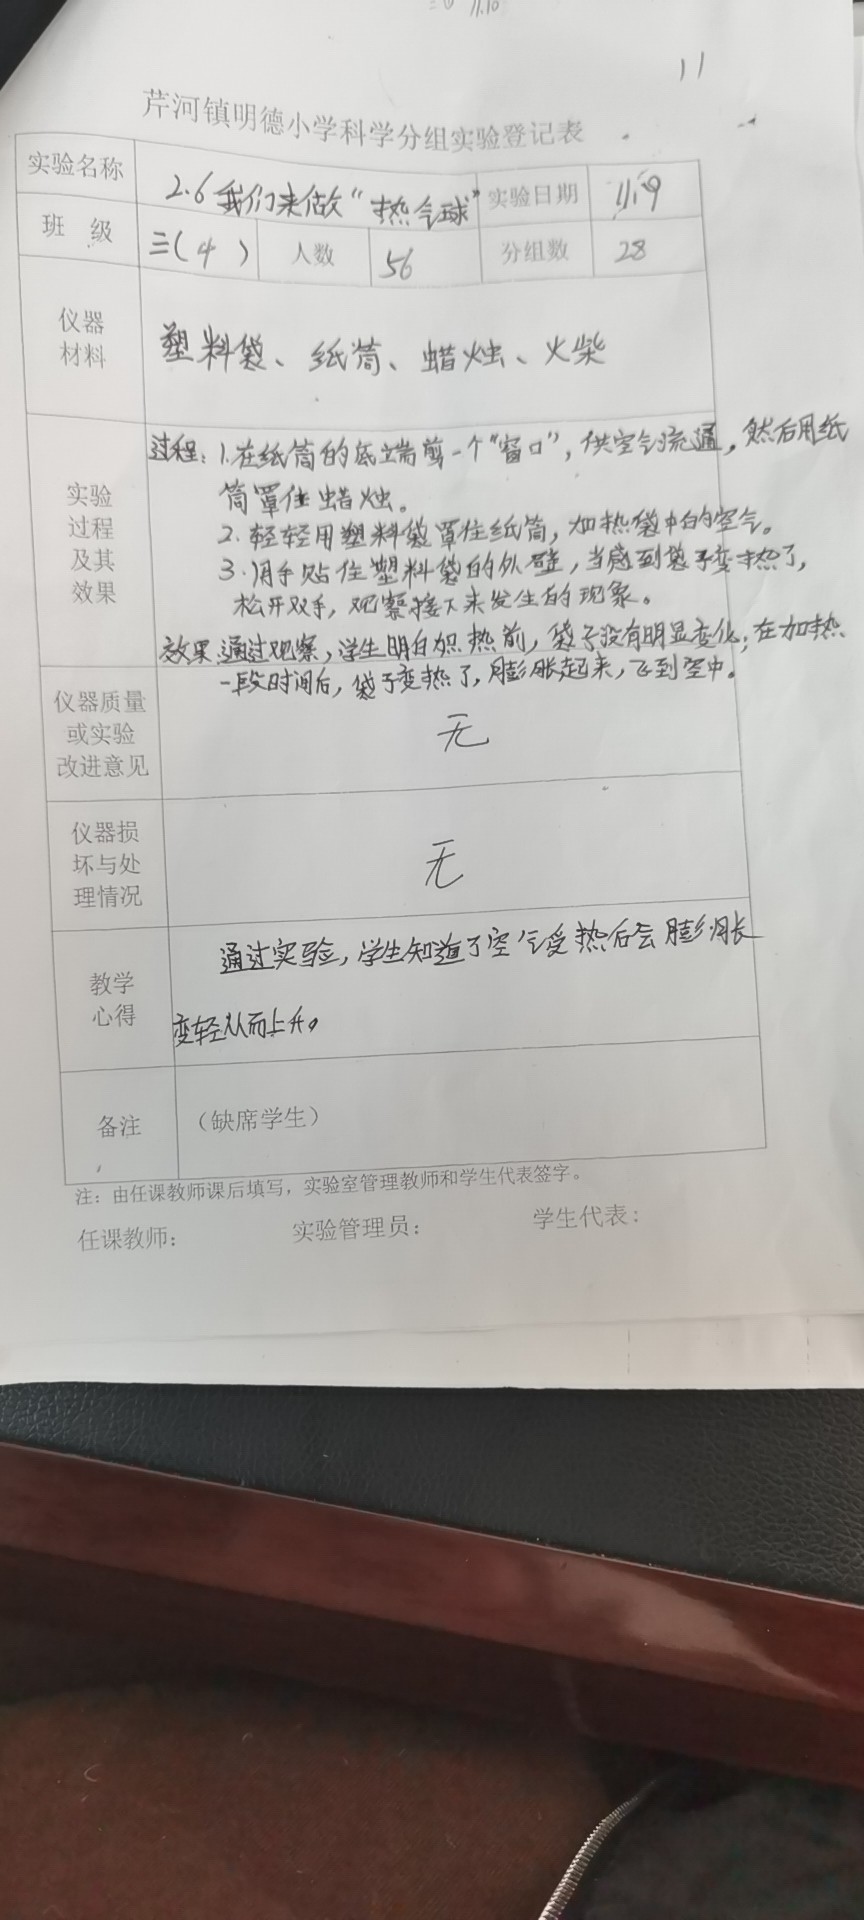 11.10
11
芹河镇明德小学科学分组实验登记表
实验名称 2.6我们来做“热气球” 实验日期 11.9
班 级 三(4) 人数 56 分组数 28
仪器
材料
塑料袋、纸筒、蜡烛、火柴
实验
过程
及其
效果
过程：1.在纸筒的底端剪一个“窗口”，供空气流通，然后用纸
筒罩住蜡烛。
2.轻轻用塑料袋罩住纸筒，加热袋中的空气。
3.用手贴住塑料袋的外壁，当感到袋子变热了，
松开双手，观察接下来发生的现象。
效果：通过观察，学生明白加热前，袋子没有明显变化；在加热
一段时间后，袋子变热了，膨胀起来，飞到空中。
仪器质量
或实验
改进意见
无
仪器损
坏与处
理情况
无
教学
心得
通过实验，学生知道了空气受热后会膨胀
变轻从而上升。
备注 （缺席学生）
注：由任课教师课后填写，实验室管理教师和学生代表签字。
任课教师： 实验管理员： 学生代表：